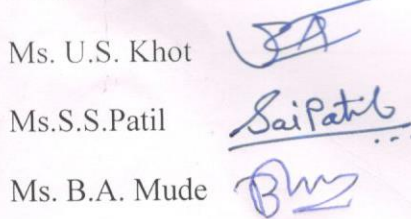 Ms. U.S. Khot
Ms.S.S.Patil SaiPatil
Ms. B.A. Mude